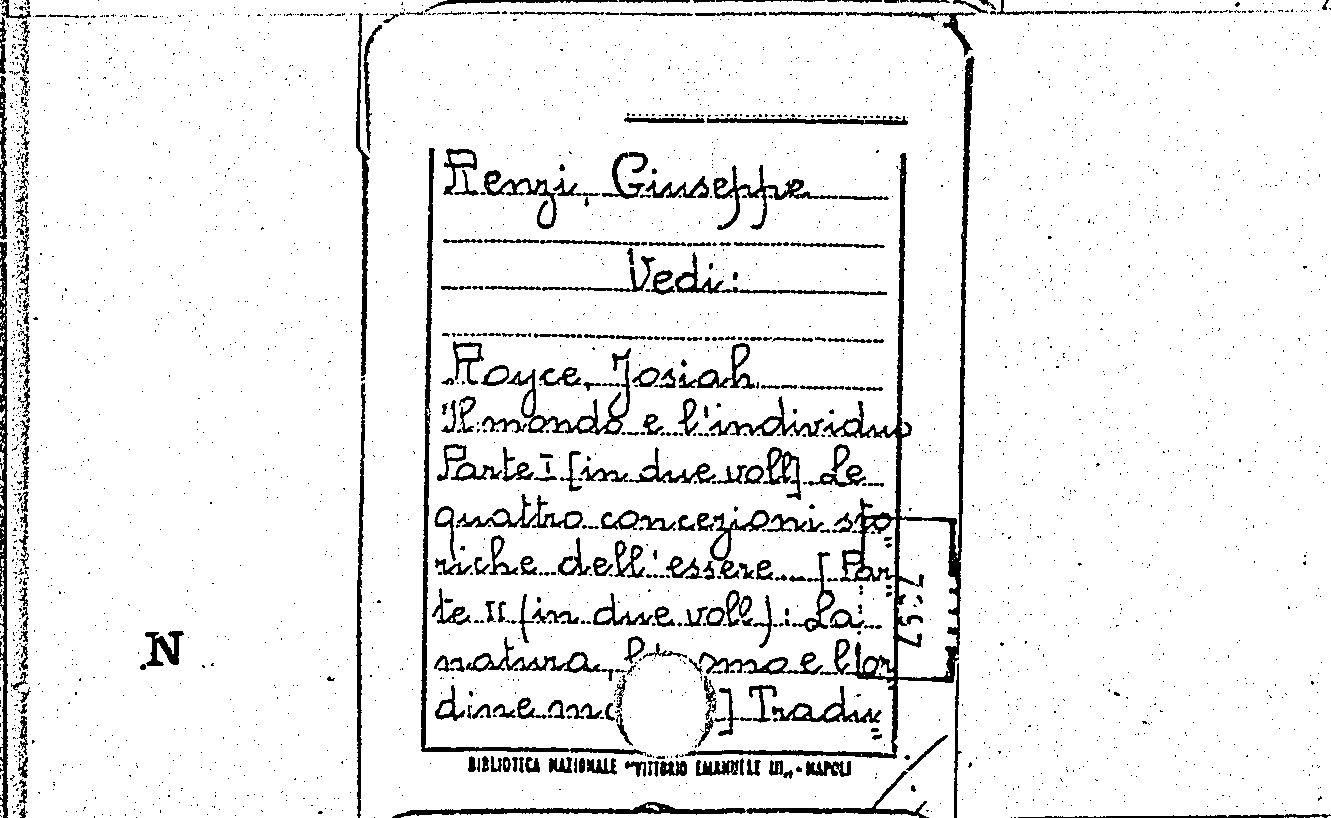 Renzi, Giuseppe
Vedi:
Royce, Josiah
Il mondo e l'individuo
Parte I [in due voll] Le
quattro concezioni sto=
riche dell'essere... [Par=
te II (in due voll): La
natura, e l'or
dine ] Tradu=
BIBLIOTECA NAZIONALE "VITTORIO EMANUELE III" - NAPOLI
N